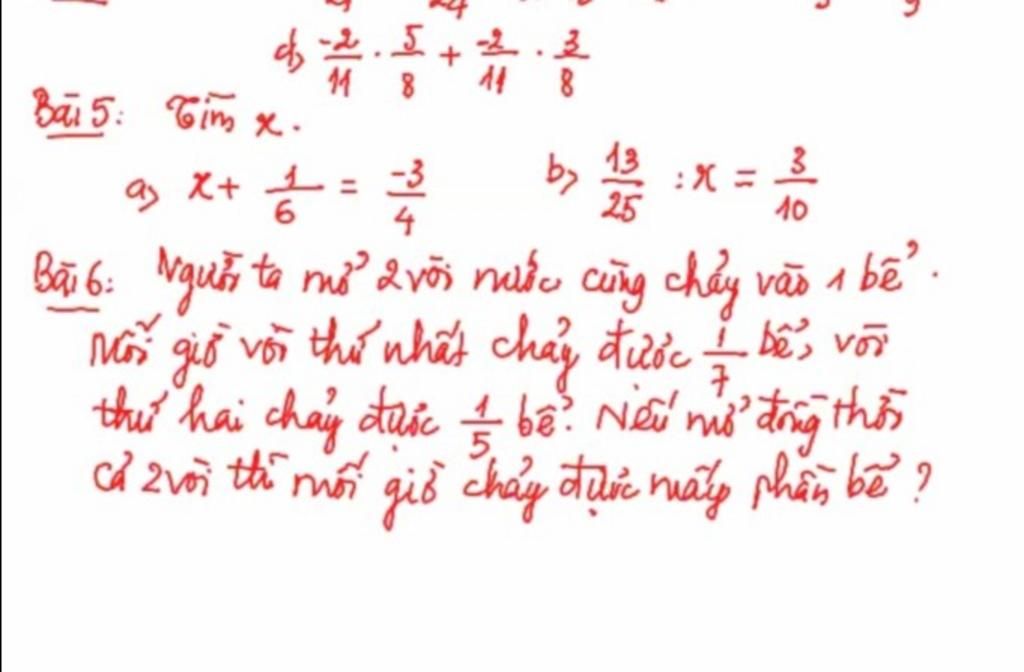 d) -2/11 . 5/8 + -2/11 . 3/8
Bài 5: Tìm x.
a) x + 1/6 = -3/4 b) 13/25 : x = 3/10
Bài 6: Người ta mở 2 vòi nước cùng chảy vào 1 bể.
Mỗi giờ vòi thứ nhất chảy được 1/7 bể, vòi
thứ hai chảy được 1/5 bể. Nếu mở đồng thời
cả 2 vòi thì mỗi giờ chảy được mấy phần bể?